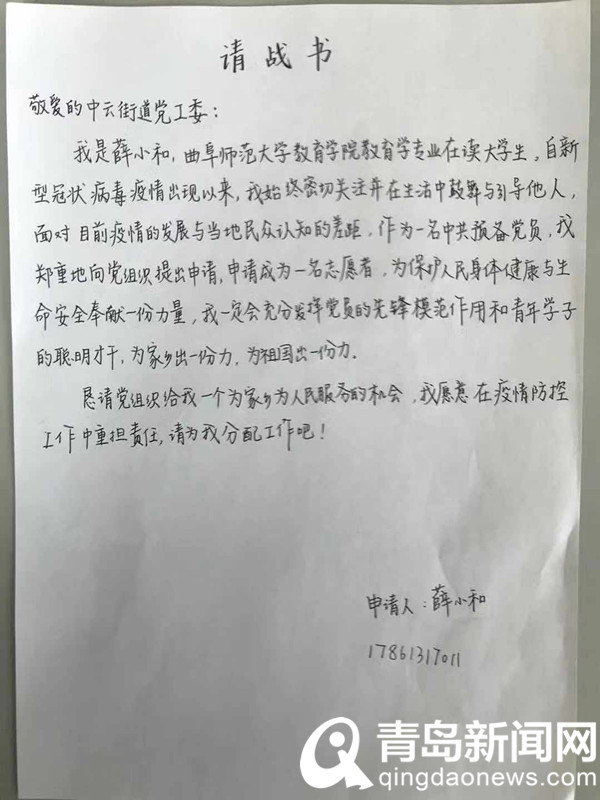 请战书
敬爱的中云街道党工委：
我是薛小和，曲阜师范大学教育学院教育学专业在读大学生。自新
型冠状病毒疫情出现以来，我始终密切关注并在生活中鼓舞与引导他人，
面对目前疫情的发展与当地民众认知的差距，作为一名中共预备党员，我
郑重地向党组织提出申请，申请成为一名志愿者，为保护人民身体健康与生
命安全奉献一份力量，我一定会充分发挥党员的先锋模范作用和青年学子
的聪明才干，为家乡出一份力，为祖国出一份力。
恳请党组织给我一个为家乡为人民服务的机会，我愿意在疫情防控
工作中重担责任，请为我分配工作吧！
申请人：薛小和
17861317011
青岛新闻网
qingdaonews.com